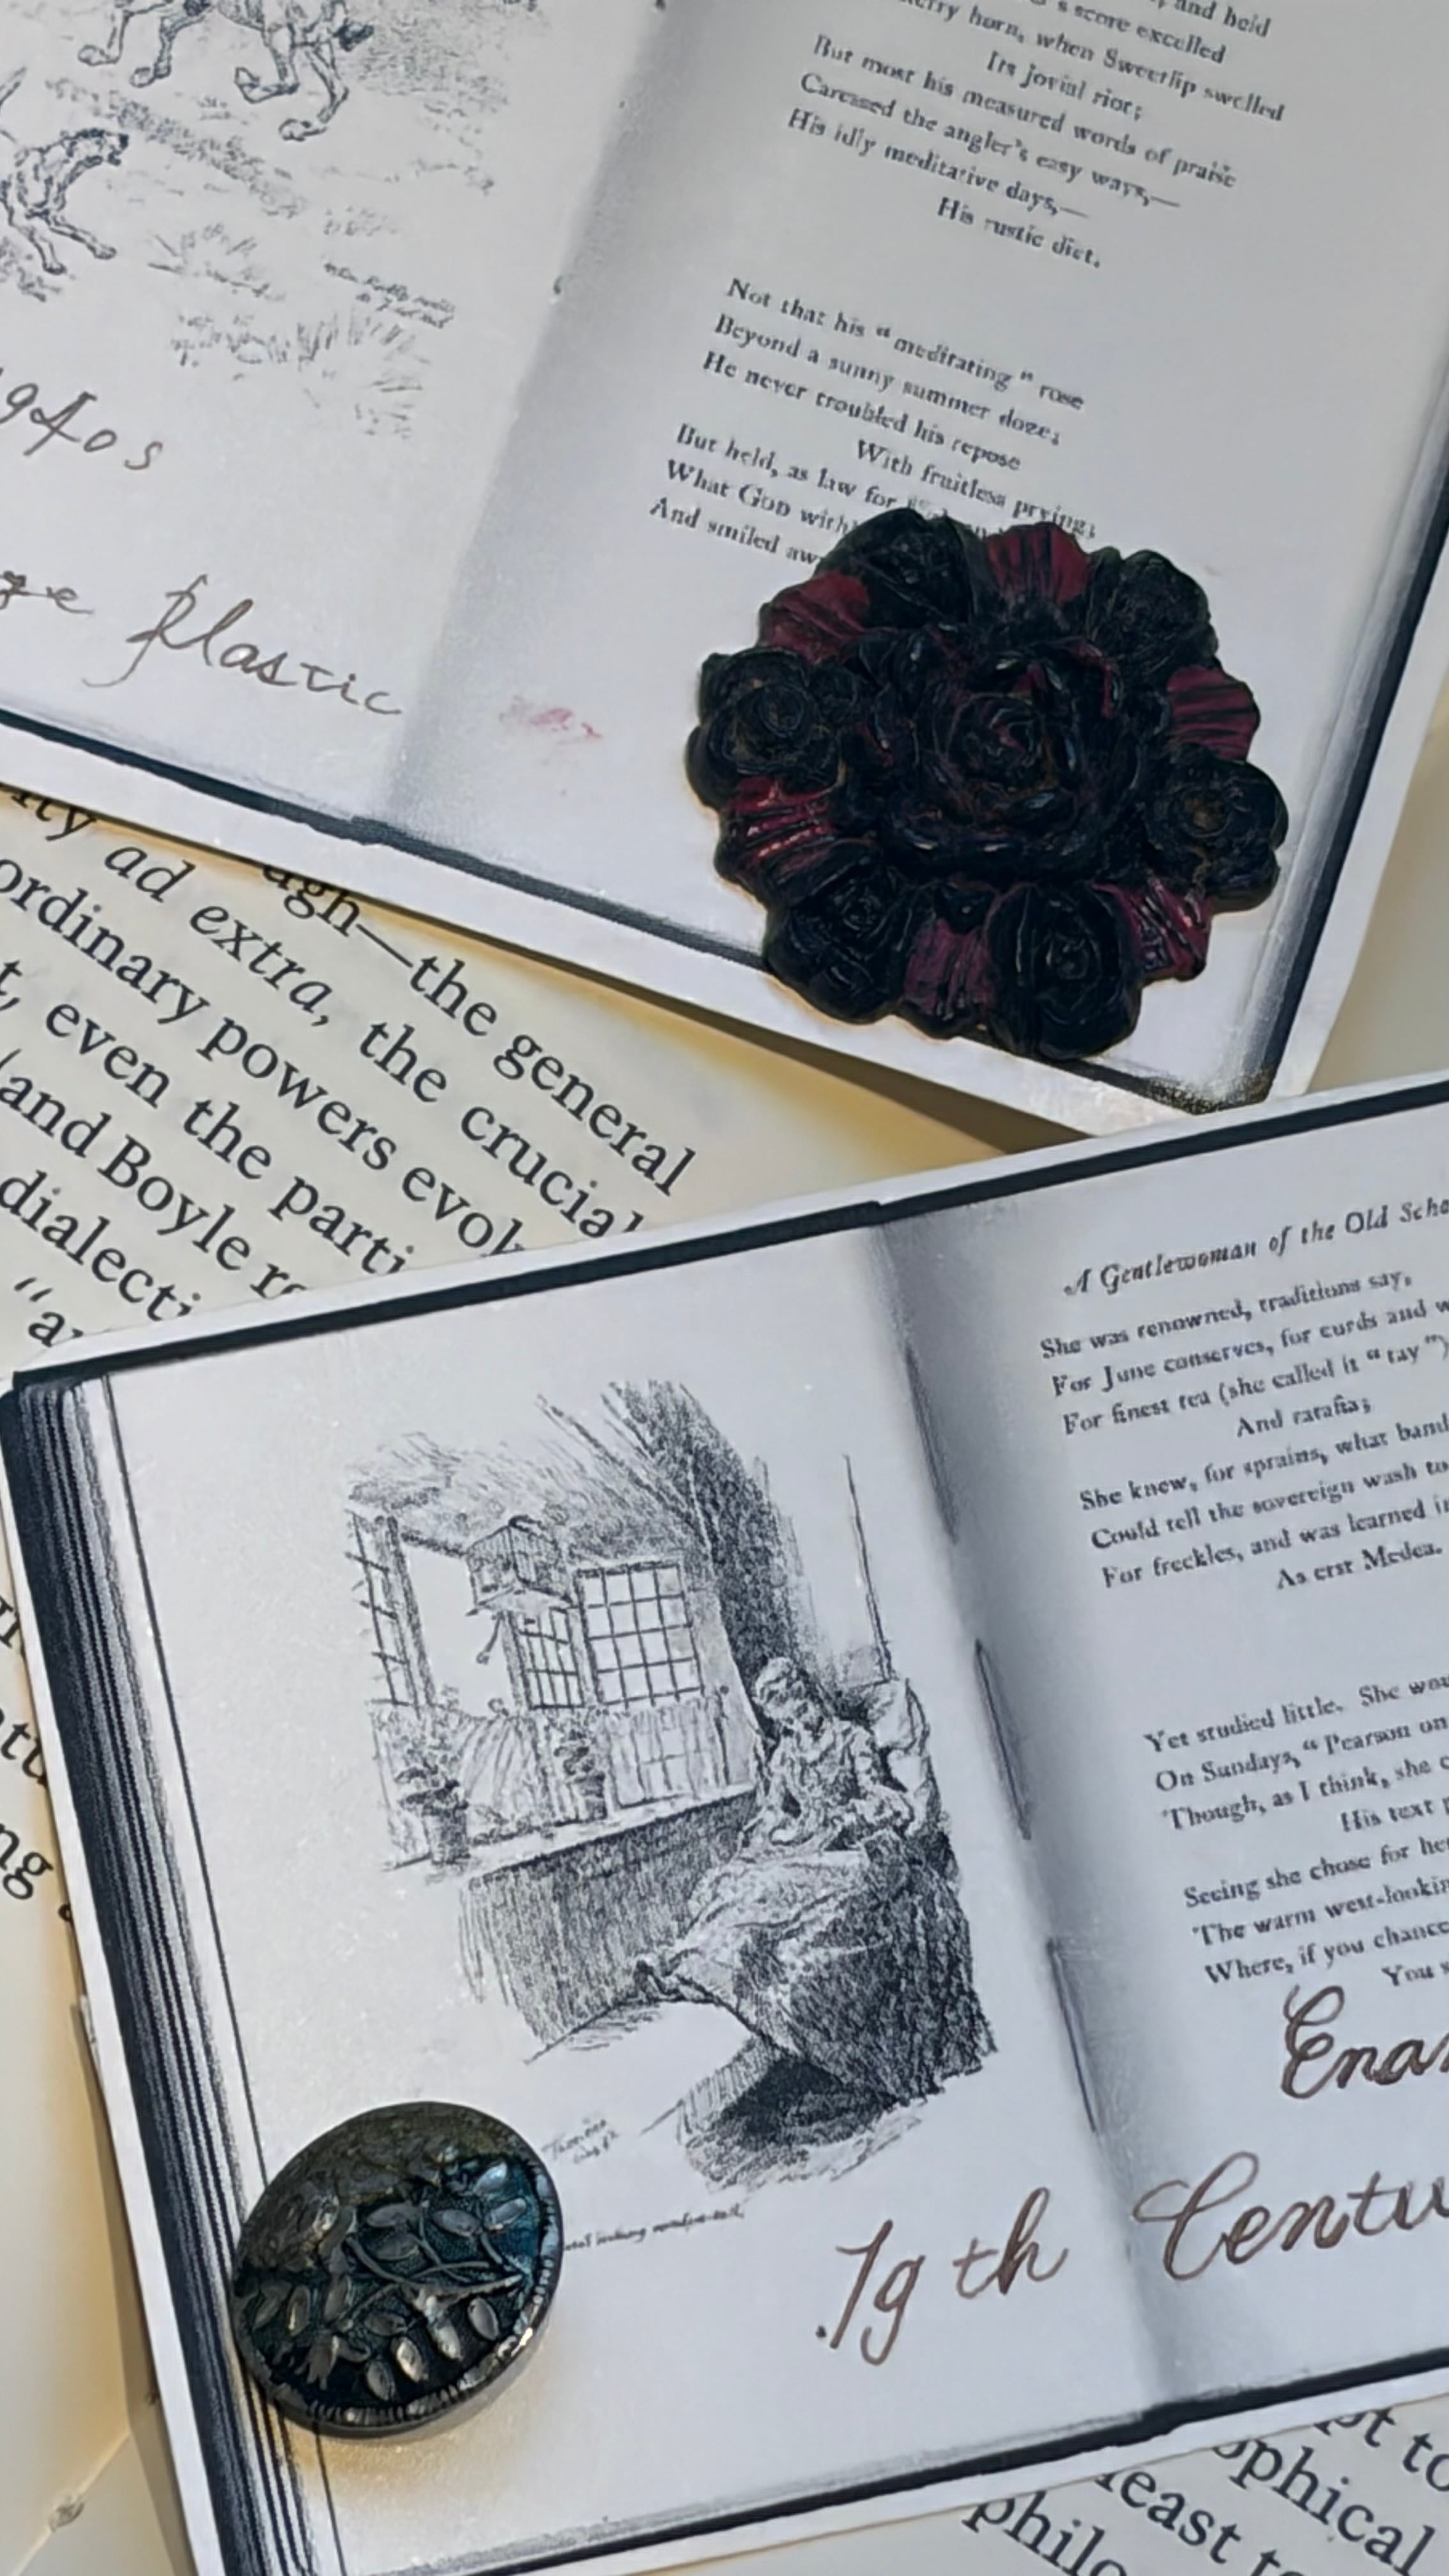 and held
's score excelled
horn, when Sweetlip swelled
Its jovial riot;
But most his measured words of praise
Caressed the angler's easy ways,—
His idly meditative days,—
His rustic diet.
Not that his "meditating" rose
Beyond a sunny summer doze;
He never troubled his repose
With fruitless prying;
But held, as law for
What God with
And smiled aw
Plastic
ad extra, the crucial
ugh—the general
ordinary powers evok
t, even the parti
(and Boyle re
dialecti
A Gentlewoman of the Old Scho
She was renowned, traditions say,
For June conserves, for curds and w
For finest tea (she called it "tay")
And ratafia;
She knew, for sprains, what band
Could tell the sovereign wash to
For freckles, and was learned i
As erst Medea.
Yet studied little. She wou
On Sundays, "Pearson on
Though, as I think, she c
His text
Seeing she chose for he
The warm west-lookin
Where, if you chance
You s
Ena
19th Centu
pt to
ophical
least to
philo